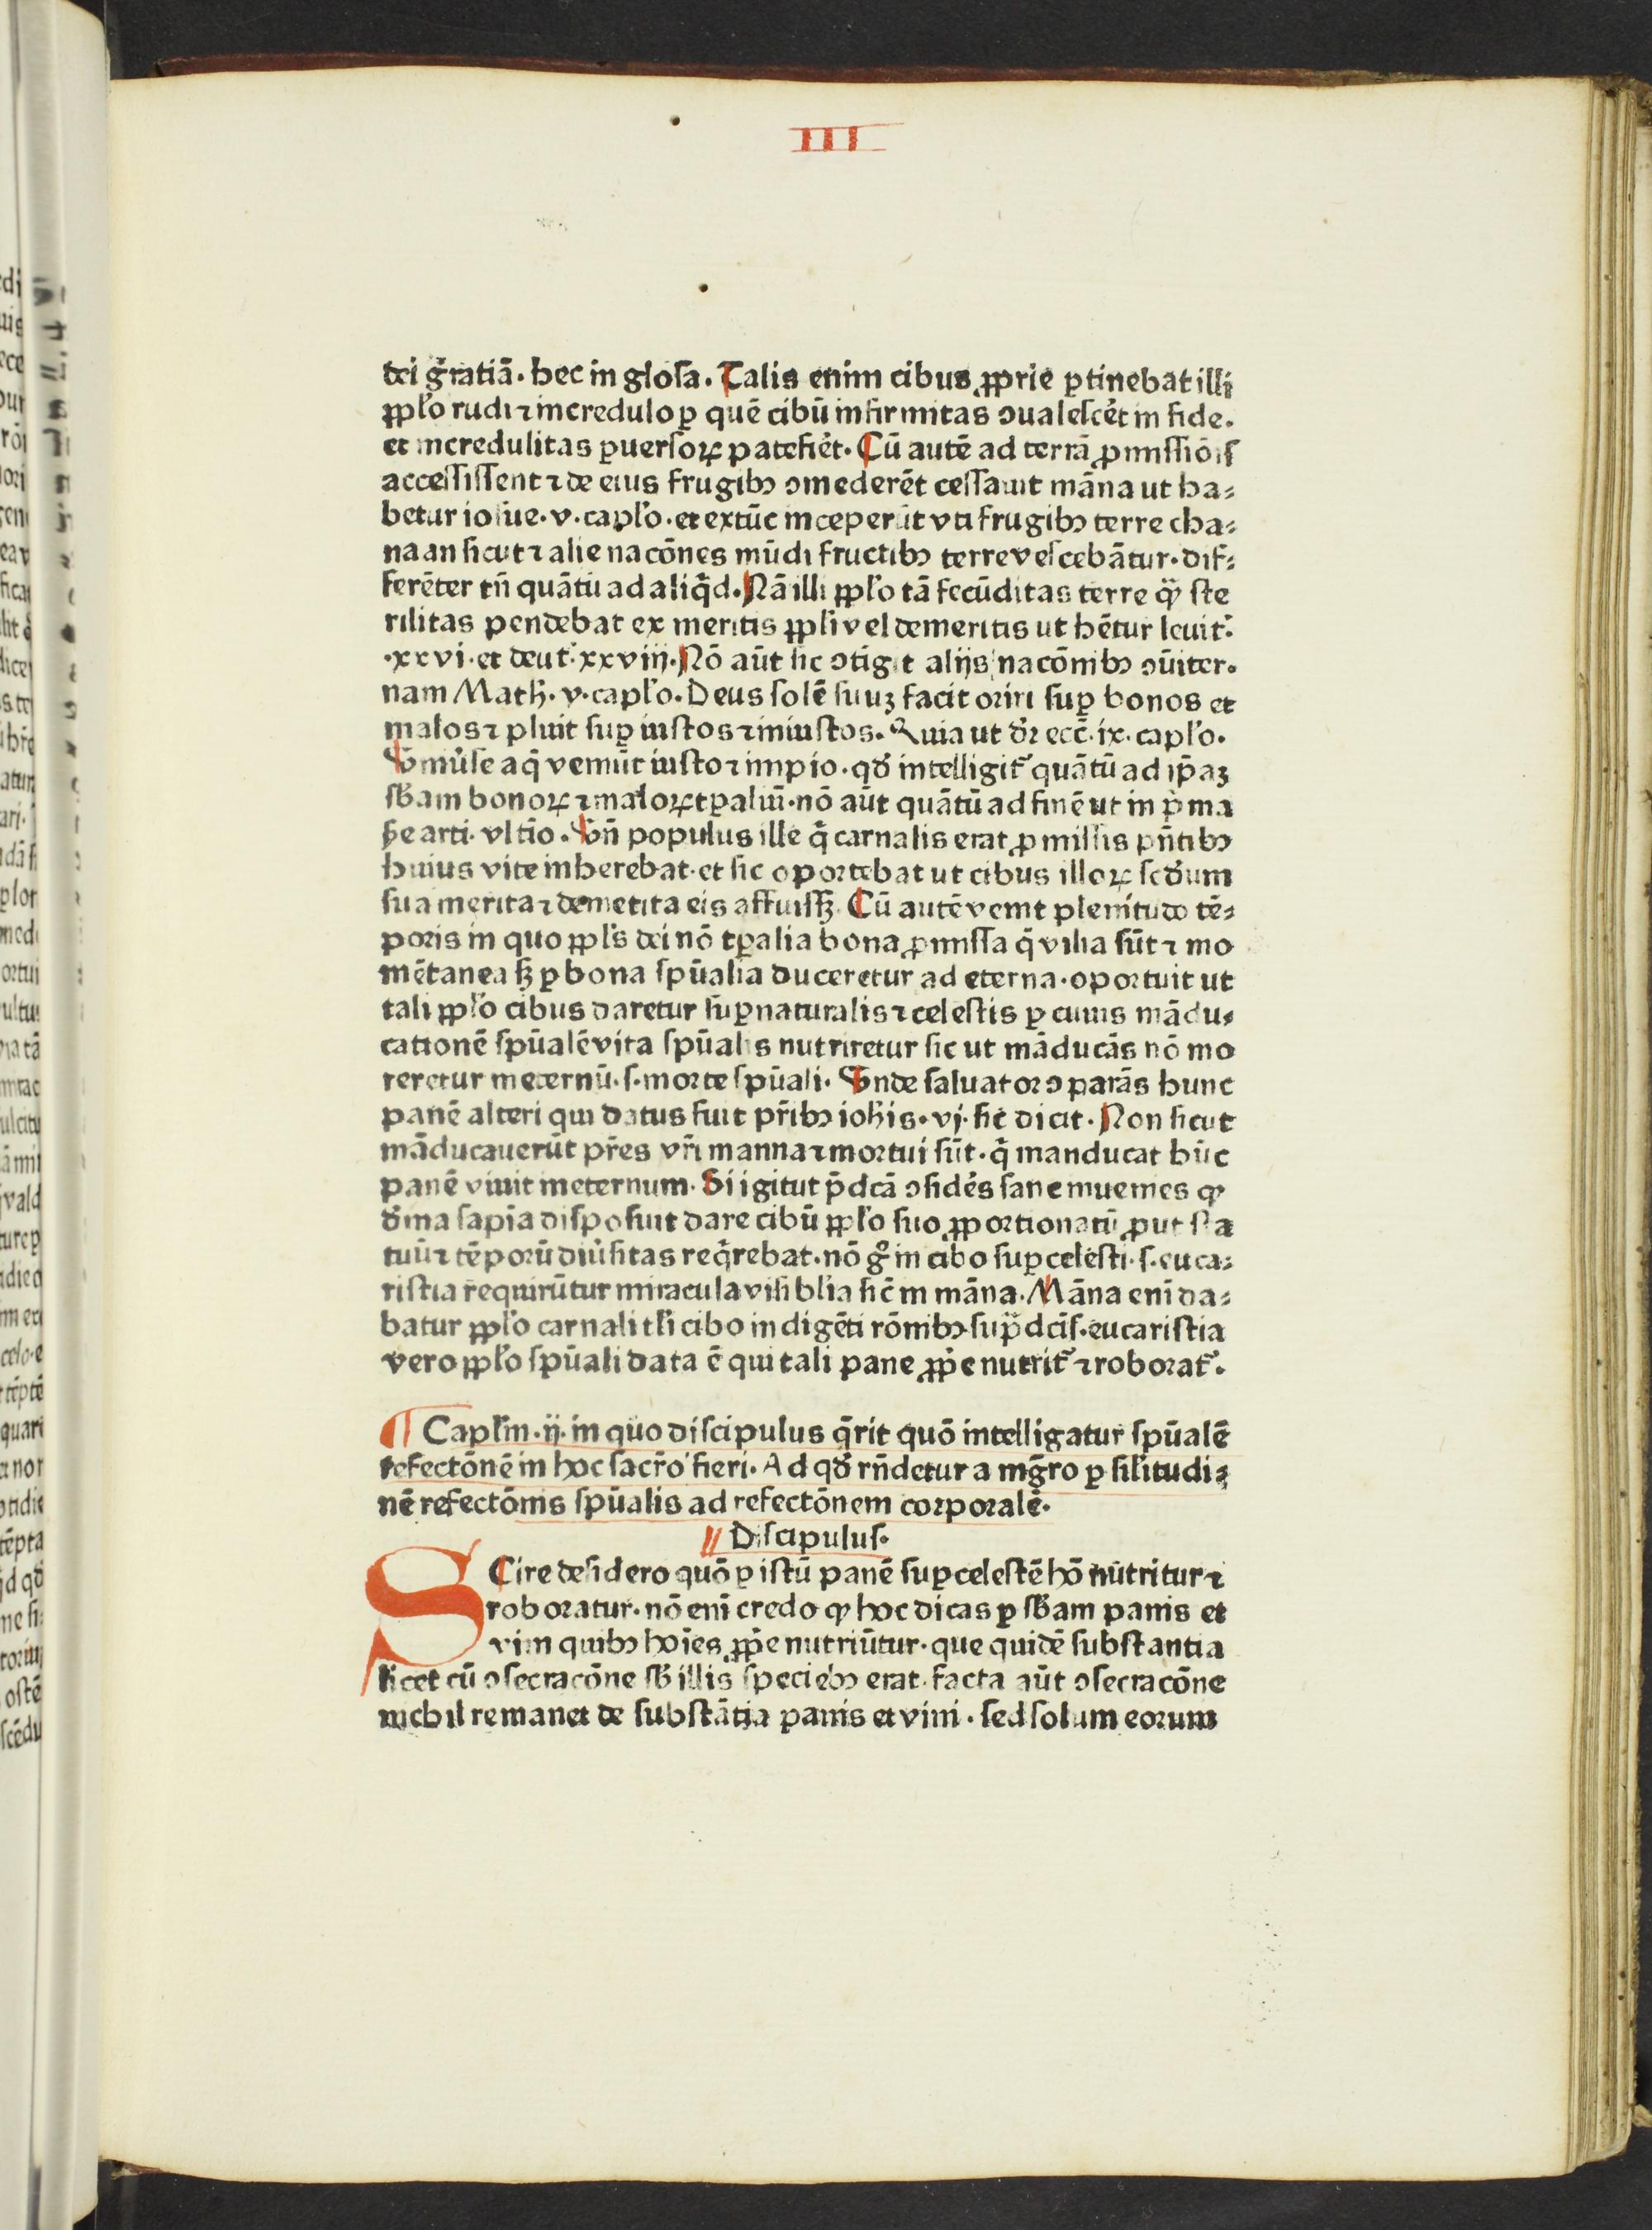 III
dei gr̄atiā. hec in gloſa. Talis enim cibus ꝓprie ꝑtinebat illi
ꝓpl'o rudi ⁊ incredulo ꝑ quē cibū infirmitas ↄualeſcēt in fide.
et incredulitas ꝑuerſoꝝ patefiēt. Cū autē ad terrā ꝓmiſſiōis
acceſſiſſent ⁊ de eius frugibꝫ ↄmederēt ceſſauit māna ut ha⸗
betur ioſue. v. capl'o. et extūc inceperūt vti frugibꝫ terre cha⸗
naan ſicut ⁊ alie nacōnes mūdi fructibꝫ terre veſcebātur. dif⸗
ferēter tn̄ quātū ad aliq̄d. Nā illi ꝓpl'o tā fecūditas terre qꝫ ſte
rilitas pendebat ex meritis ꝓpl'i vel demeritis ut hētur leuit'.
.xxvi. et deut'. xxviij. Nō aūt ſic ↄtigit alijs nacōnibꝫ ↄūiter.
nam Math. v. capl'o. Deus ſolē ſuuꝫ facit oriri ſuꝑ bonos et
malos ⁊ pluit ſuꝑ iuſtos ⁊ iniuſtos. Quia ut dr̄ ecc̄. ix. capl'o.
Vniu'ſe aq̄ veniūt iuſto ⁊ impio. qd' intelligit' quātū ad ip̄aꝫ
ſb'am bonoꝝ ⁊ maloꝝ tꝑaliū. nō aūt quātū ad finē ut in p'ma
ꝑte arti. vltīo. Vn̄ populus ille q̄ carnalis erat ꝓmiſſis pn̄tibꝫ
huius vite inherebat. et ſic oportebat ut cibus illoꝝ ſcd'um
ſua merita ⁊ demetita eis affuiſſꝫ. Cū autē venit plenitudo tē⸗
poris in quo ꝓpl's dei nō tꝑalia bona ꝓmiſſa q̄ vilia ſūt ⁊ mo
mētanea ſꝫ ꝑ bona ſpūalia duceretur ad eterna. oportuit ut
tali ꝓpl'o cibus daretur ſuꝑnaturalis ⁊ celeſtis ꝑ cuius mādu⸗
cationē ſpūalē vita ſpūalis nutriretur ſic ut māducās nō mo
reretur in eternū. ſ. morte ſpūali. Vnde ſaluator ↄparās hunc
panē alteri qui datus fuit pr̄ibꝫ ioh'is. vj. ſic dicit. Non ſicut
māducauerūt pr̄es vr̄i manna ⁊ mortui ſūt. q̄ manducat hūc
panē viuit in eternum. Si igitut p̄dcā ↄſidēs ſane inuenies ꝙ
d'ina ſapīa diſpoſuit dare cibū ꝓpl'o ſuo ꝓportionatū ꝓut ſta
tuū ⁊ tēporū diu'ſitas req̄rebat. nō g° in cibo ſuꝑceleſti. ſ. euca⸗
riſtia requirūtur miracula viſiblia ſic̄ in māna. Māna eni da⸗
batur ꝓpl'o carnali tl'i cibo indigēti rōnibꝫ ſup̄dcīſ. euca­riſtia
vero ꝓpl'o ſpūali data ē qui tali pane ꝓp'e nutrit' ⁊ roborat'.
¶ Capl'm .ij. in quo diſcipulus q̄rit quō intelligatur ſpūalē
refectōnē in hoc ſacr̄o fieri. Ad qd' rn̄detur a mgr̄o ꝑ ſil'itudi⸗
nē refectōnis ſpūalis ad refectōnem corporalē.
Diſcipuluſ.
SCire deſidero quō ꝑ iſtū panē ſuꝑceleſtē hō nutritur ⁊
roboratur. nō eni credo ꝙ hoc dicas ꝑ ſb'am panis et
vim quibꝫ hoīes ꝓp'e nutriūtur. que quidē ſubſtantia
licet cū ↄſecracōne ſb' illis ſpeciebꝫ erat. facta aūt ↄſecracōne
nichil remanet de ſubſtātia panis et vini. ſed ſolum eorum